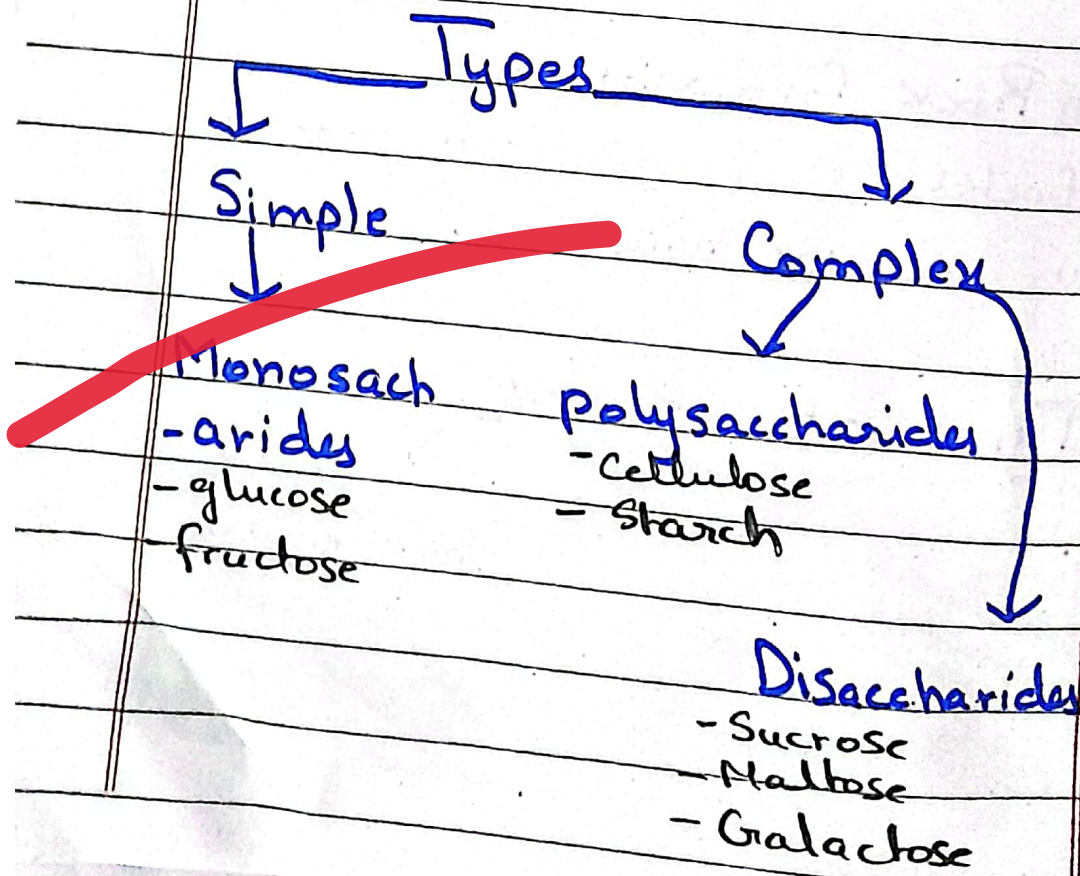 Types
Simple
Complex
Monosach
-arides
- glucose
- fructose
polysaccharides
- Cellulose
- Starch
Disaccharides
- Sucrose
- Maltose
- Galactose